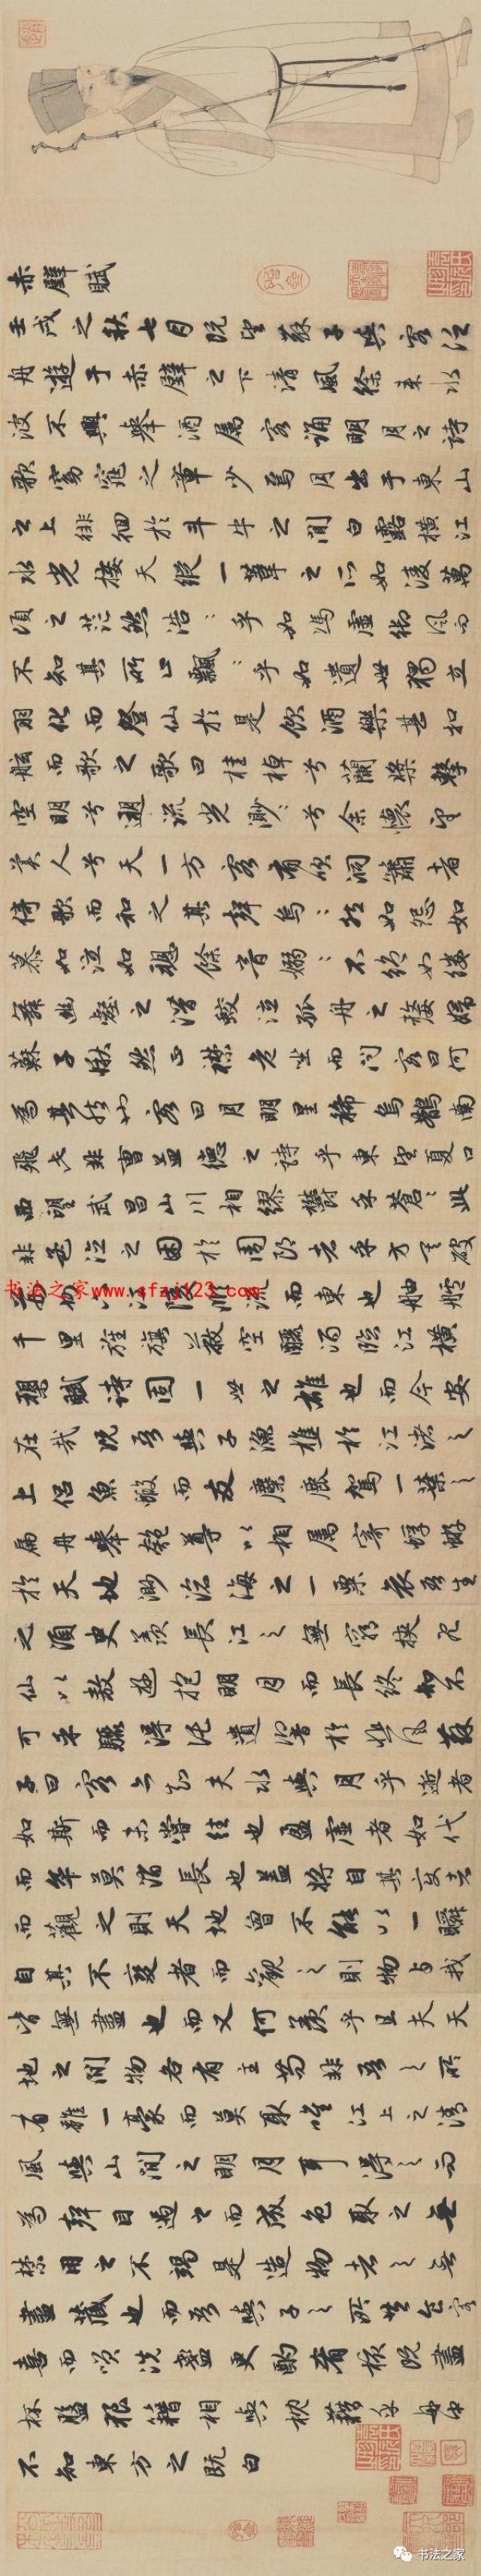 赤壁賦
壬戌之秋七月既望蘇子與客泛
舟遊于赤壁之下清風徐來水
波不興舉酒屬客誦明月之詩
歌窈窕之章少焉月出于東山
之上徘徊於斗牛之間白露橫江
水光接天縱一葦之所如凌萬
頃之茫然浩〻乎如馮虛御風而
不知其所止飄〻乎如遺世獨立
羽化而登仙於是飲酒樂甚扣
舷而歌之歌曰桂棹兮蘭槳擊
空明兮遡流光渺〻兮余懷望
美人兮天一方客有吹洞簫者
倚歌而和之其聲烏〻然如怨如
慕如泣如訴餘音嫋〻不絕如縷
舞幽壑之潛蛟泣孤舟之嫠婦
蘇子愀然正襟危坐而問客曰何
為其然也客曰月明星稀烏鵲南
飛此非曹孟德之詩乎東望夏口
西望武昌山川相繆鬱乎蒼〻此
非孟德之困於周郎者乎方其破
荊州下江陵順流而東也舳艫
千里旌旗蔽空釃酒臨江橫
槊賦詩固一世之雄也而今安
在哉況吾與子漁樵於江渚之
上侶魚蝦而友麋鹿駕一葉之
扁舟舉匏尊以相屬寄蜉蝣
於天地渺滄海之一粟哀吾生
之須臾羨長江之無窮挾飛
仙以敖遊抱明月而長終知不
可乎驟得託遺響於悲風蘇
子曰客亦知夫水與月乎逝者
如斯而未嘗往也盈虛者如代
而卒莫消長也蓋將自其變者
而觀之則天地曾不能以一瞬
自其不變者而觀之則物與我
皆無盡也而又何羨乎且夫天
地之間物各有主苟非吾之所
有雖一豪而莫取唯江上之清
風與山間之明月耳得之而
為聲目遇之而成色取之無
禁用之不竭是造物者之無
盡藏也而吾與子之所共食客
喜而笑洗盞更酌肴核既盡
杯盤狼籍相與枕藉乎舟中
不知東方之既白
书法之家www.sfzj123.com
书法之家